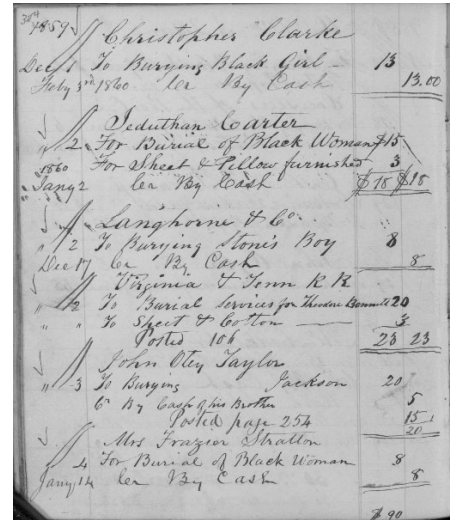 304
1859 Christopher Clarke
Dec 1 To Burying Black Girl 13
Feby 3rd 1860 Cr By Cash 13.00
Jeduthan Carter
" 2 For Burial of Black Woman $15
For Sheet & Pillow furnished 3
1860
Jany 2 Cr By Cash $18 $18
Langhorne & Co.
" 2 To Burying Stone's Boy 8
Dec 17 Cr By Cash 8
Virginia & Tenn R R
" 2 To Burial Services for Theodore 20
" " To Sheet & Cotton 3
Posted 106 23 23
John Otey Taylor
" 3 To Burying Jackson 20
Cr By Cash of his Brother 5
Posted page 254 15
20
Mrs Frazier Stratton
" 4 For Burial of Black Woman 8
Jany 14 Cr By Cash 8
$90